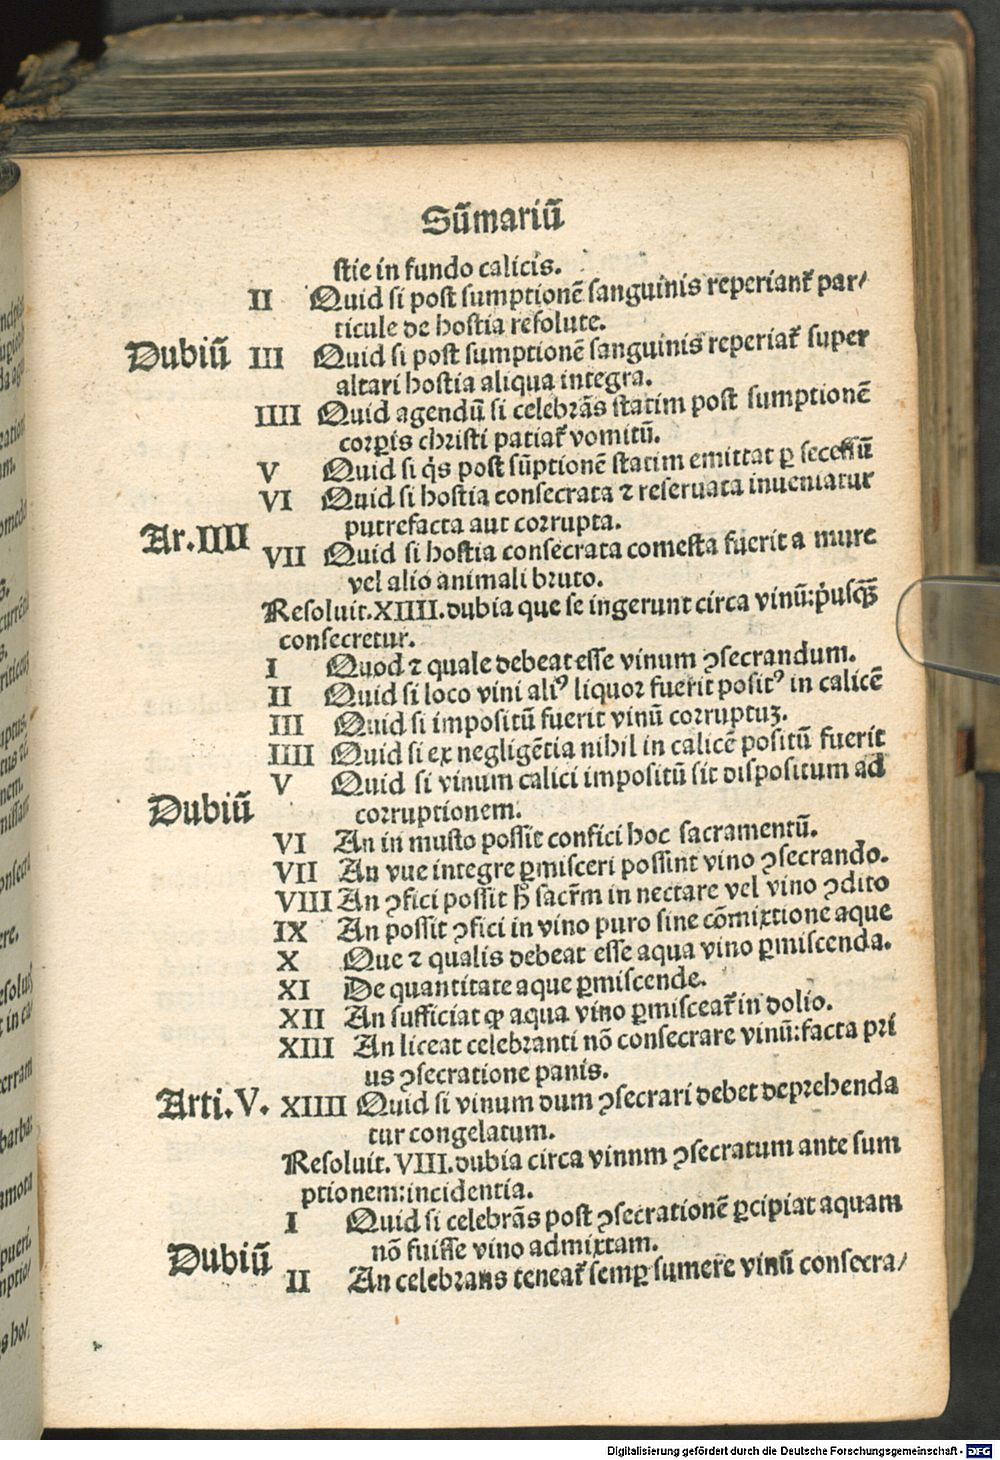 Sūmariū
stie in fundo calicis.
II Quid si post sumptionē sanguinis reperiant᷑ par/
ticule de hostia resolute.
Dubiū III Quid si post sumptionē sanguinis reperiat᷑ super
altari hostia aliqua integra.
IIII Quid agendū si celebrās statim post sumptionē
corꝑis christi patiat᷑ vomitū.
V Quid si q̇s post sūptionē statim emittat ꝑ secessū
VI Quid si hostia consecrata ⁊ reseruata inueniatur
putrefacta aut corrupta.
Ar.IIII
VII Quid si hostia consecrata comesta fuerit a mure
vel alio animali bruto.
Resoluit.XIIII.dubia que se ingerunt circa vinū:pᷣusq̄ꝫ
consecretur.
I Quod ⁊ quale debeat esse vinum ꝯsecrandum.
II Quid si loco vini aliꝰ liquor fuerit positꝰ in calicē
III Quid si impositū fuerit vinū corruptuꝫ.
IIII Quid si ex negligētia nihil in calicē positū fuerit
V Quid si vinum calici impositū sit dispositum ad
Dubiū
corruptionem.
VI An in musto possit confici hoc sacramentū.
VII An vue integre ꝑmisceri possint vino ꝯsecrando.
VIII An ꝯfici possit h̄ sacr̄m in nectare vel vino ꝯdito
IX An possit ꝯfici in vino puro sine cōmixtione aque
X Que ⁊ qualis debeat esse aqua vino ꝑmiscenda.
XI De quantitate aque ꝑmiscende.
XII An sufficiat ꝙ aqua vino ꝑmisceat᷑ in dolio.
XIII An liceat celebranti nō consecrare vinū:facta pri
us ꝯsecratione panis.
Arti.V. XIIII Quid si vinum dum ꝯsecrari debet deprehenda
tur congelatum.
Resoluit.VIII.dubia circa vinnm ꝯsecratum ante sum
ptionem:incidentia.
I Quid si celebrās post ꝯsecrationē ꝑcipiat aquam
nō fuisse vino admixtam.
Dubiū
II An celebrans teneat᷑ semꝑ sumere vinū consecra/
Digitalisierung gefördert durch die Deutsche Forschungsgemeinschaft - DFG